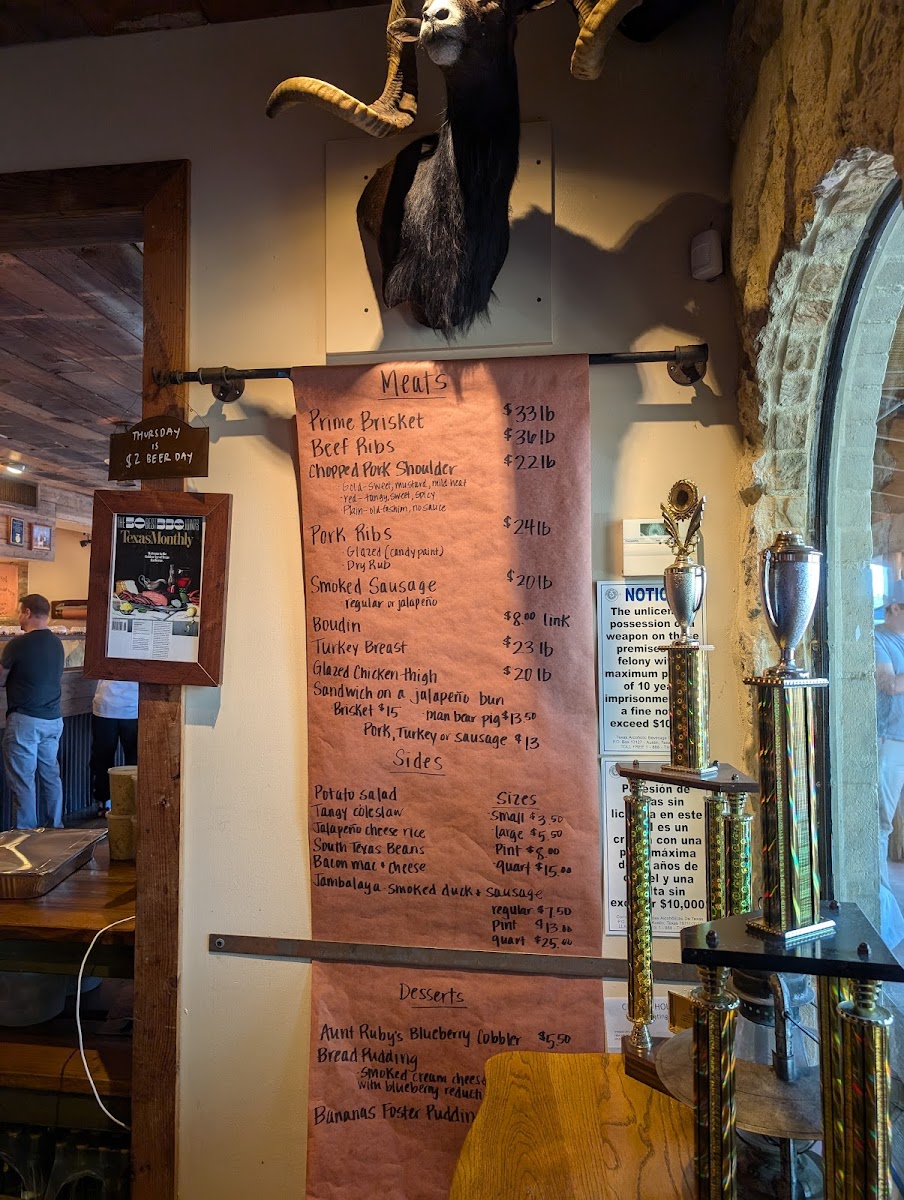 Meats
Prime Brisket $33 lb
Beef Ribs $36 lb
Chopped Pork Shoulder $22 lb
- Gold - sweet, mustard, mild heat
- red - tangy, sweet, spicy
Plain - old-fashion, no sauce
Pork Ribs $24 lb
- Glazed (candy paint)
- Dry Rub
Smoked Sausage $20 lb
regular or jalapeño
Boudin $8.00 link
Turkey Breast $23 lb
Glazed Chicken thigh $20 lb
Sandwich on a jalapeño bun
Brisket $15 - man bear pig $13.50
Pork, Turkey or sausage $13
Sides
Potato salad
Tangy coleslaw
Jalapeño cheese rice
South Texas Beans
Bacon mac & cheese
Sizes
small $3.50
large $5.50
Pint $8.00
quart $15.00
Jambalaya - smoked duck & sausage
regular $7.50
pint $13.00
quart $25.00
Desserts
Aunt Ruby's Blueberry Cobbler $5.50
Bread Pudding
- smoked cream chees
with blueberry reducti
Bananas Foster Puddin
THURSDAY
IS
$2 BEER DAY
THE 50 BEST BBQ JOINTS
TexasMonthly
NOTIC
The unlicen
possession o
weapon on th
premise
felony wi
maximum p
of 10 yea
imprisonmen
a fine no
exceed $10
Posesión de
as sin
licencia en este
l es un
cr con una
p máxima
de años de
c el y una
lta sin
exc er $10,000